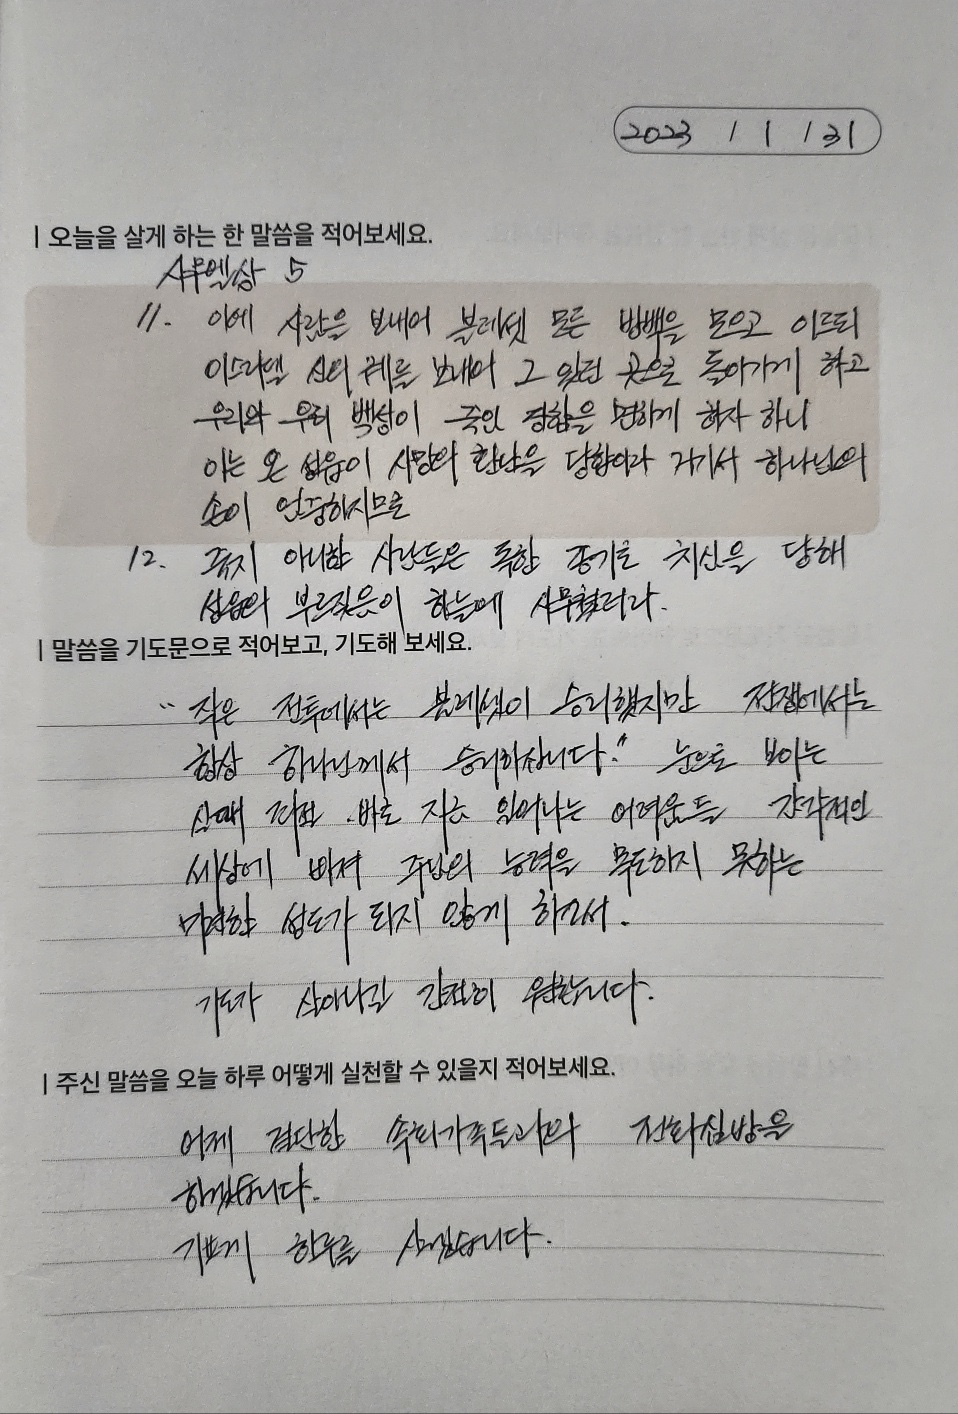 2023 / 1 / 31
| 오늘을 살게 하는 한 말씀을 적어보세요.
사무엘상 5
11. 이에 사람을 보내어 블레셋 모든 방백을 모으고 이르되
이스라엘 신의 궤를 보내어 그 있던 곳으로 돌아가게 하고
우리와 우리 백성이 죽임 당함을 면하게 하자 하니
이는 온 성읍이 사망의 환난을 당함이라 거기서 하나님의
손이 엄중하시므로
12. 죽지 아니한 사람들은 독한 종기로 치심을 당해
성읍의 부르짖음이 하늘에 사무쳤더라.
| 말씀을 기도문으로 적어보고, 기도해 보세요.
"작은 전투에서는 블레셋이 승리했지만 전쟁에서는
항상 하나님께서 승리하십니다." 눈으로 보이는
실패 좌절 바로 지금 일어나는 어려움들 감각적인
세상에 빠져 주님의 능력을 목도하지 못하는
미련한 성도가 되지 않게 하소서.
기도가 살아나길 간절히 원합니다.
| 주신 말씀을 오늘 하루 어떻게 실천할 수 있을지 적어보세요.
어제 결단한 속회가족들과의 전화심방을
하겠습니다.
기쁘게 하루를 살겠습니다.